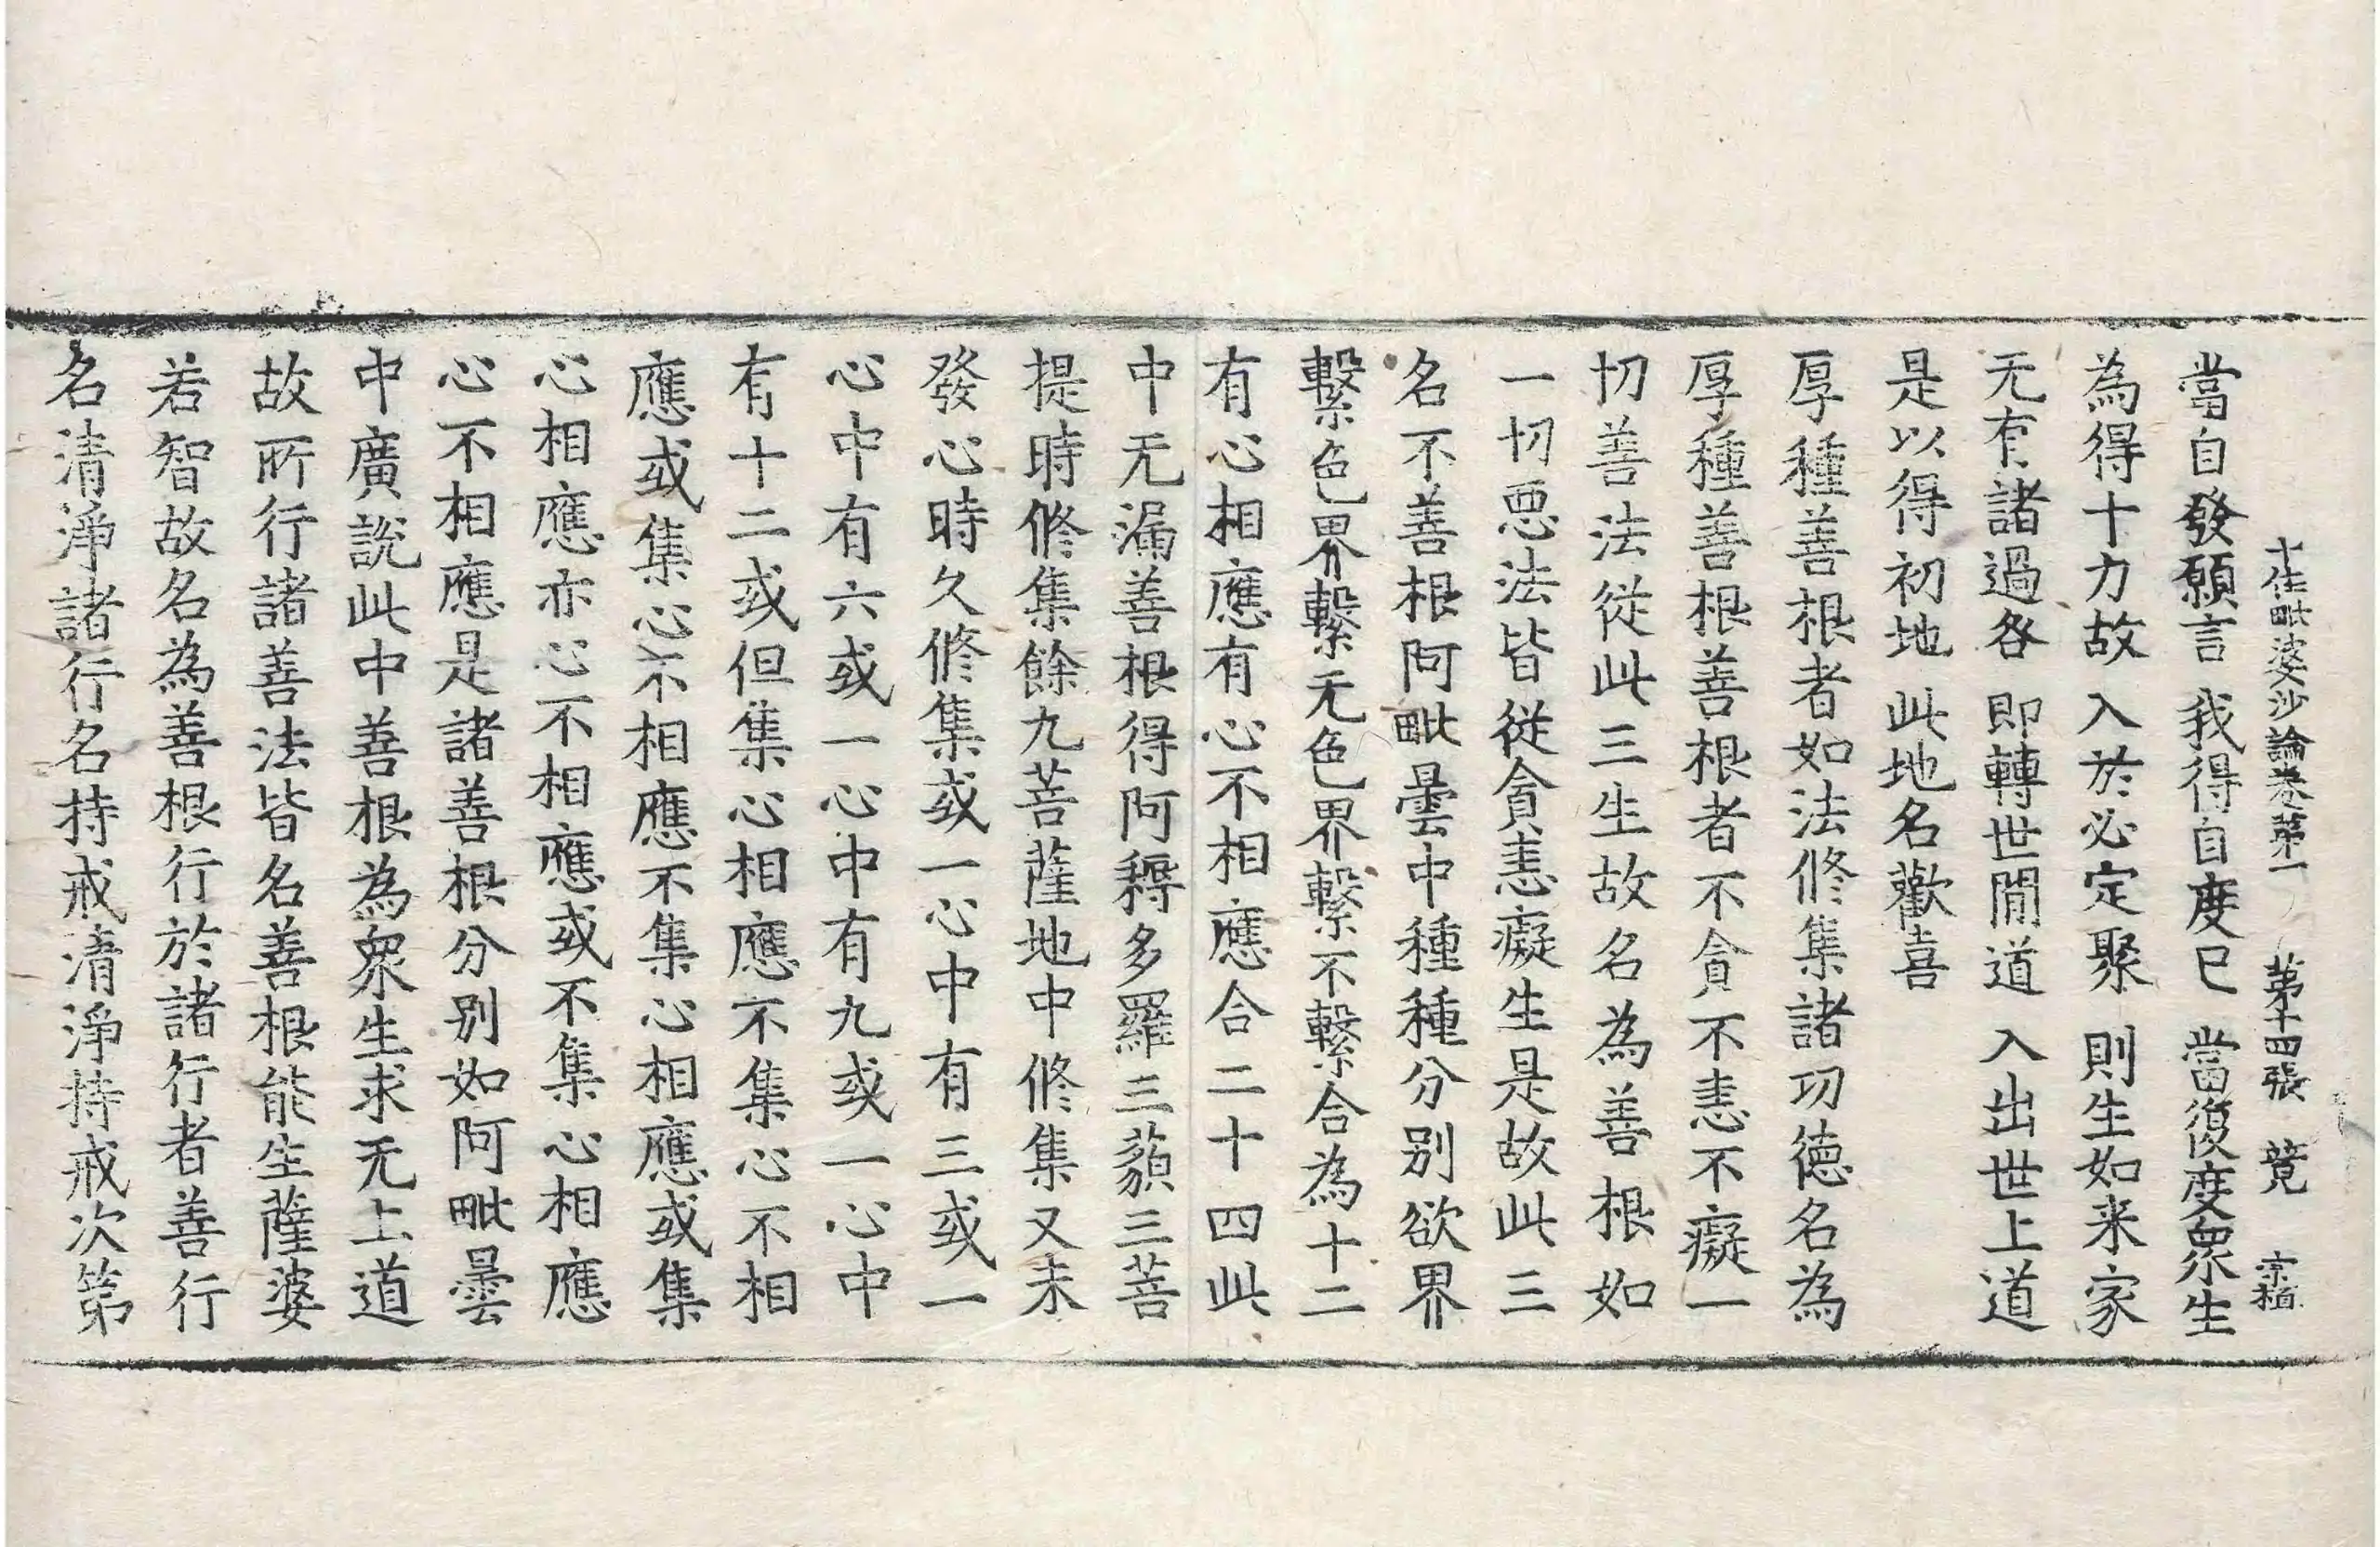 十住毗婆沙論卷第一 第十四張 競 宗植
當自發願言 我得自度已 當復度衆生
為得十力故 入於必定聚 則生如来家
无有諸過咎 即轉世閒道 入出世上道
是以得初地 此地名歡喜
厚種善根者如法修集諸功德名為
厚種善根善根者不貪不恚不癡一
切善法從此三生故名為善根如
一切惡法皆從貪恚癡生是故此三
名不善根阿毗曇中種種分別欲界
繫色界繫无色界繫不繫合為十二
有心相應有心不相應合二十四此
中无漏善根得阿耨多羅三藐三菩
提時修集餘九菩薩地中修集又未
發心時久修集或一心中有三或一
心中有六或一心中有九或一心中
有十二或但集心相應不集心不相
應或集心不相應不集心相應或集
心相應亦心不相應或不集心相應
心不相應是諸善根分別如阿毗曇
中廣說此中善根為衆生求无上道
故所行諸善法皆名善根能生薩婆
若智故名為善根行於諸行者善行
名清淨諸行名持戒清淨持戒次第